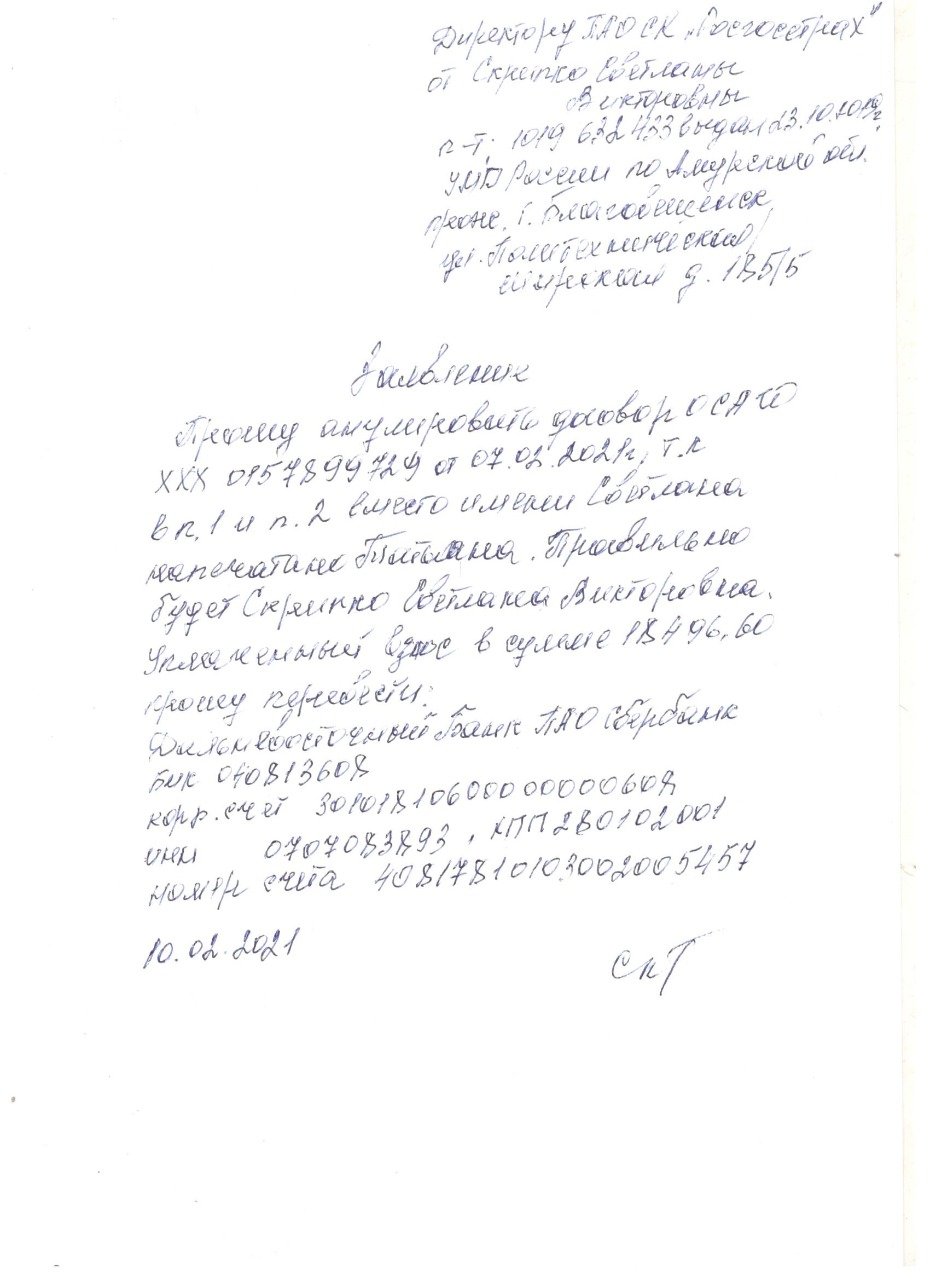 Директору ПАО СК „Росгосстрах"
от Скрипко Светланы
Викторовны
п-т: 1019 632433 выдан 23.10.2019г
УМВД России по Амурской обл.
прож. г. Благовещенск,
ул. Политехническая/
д. 185/5
Заявление
Прошу анулировать договор ОСАГО
ХХХ 0157899729 от 07.02.2021г, т.к
в п.1 и п.2 вместо имени Светлана
напечатано Татьяна. Правильно
будет Скрипко Светлана Викторовна.
Уплаченный взнос в сумме 18496,60
прошу перевести:
Дальневосточный Банк ПАО Сбербанк
Бик 040813608
корр. счет 30101810600000000608
инн 0707083893, КПП 280102001
номер счета 40817810103002005457
10.02.2021
СкТ